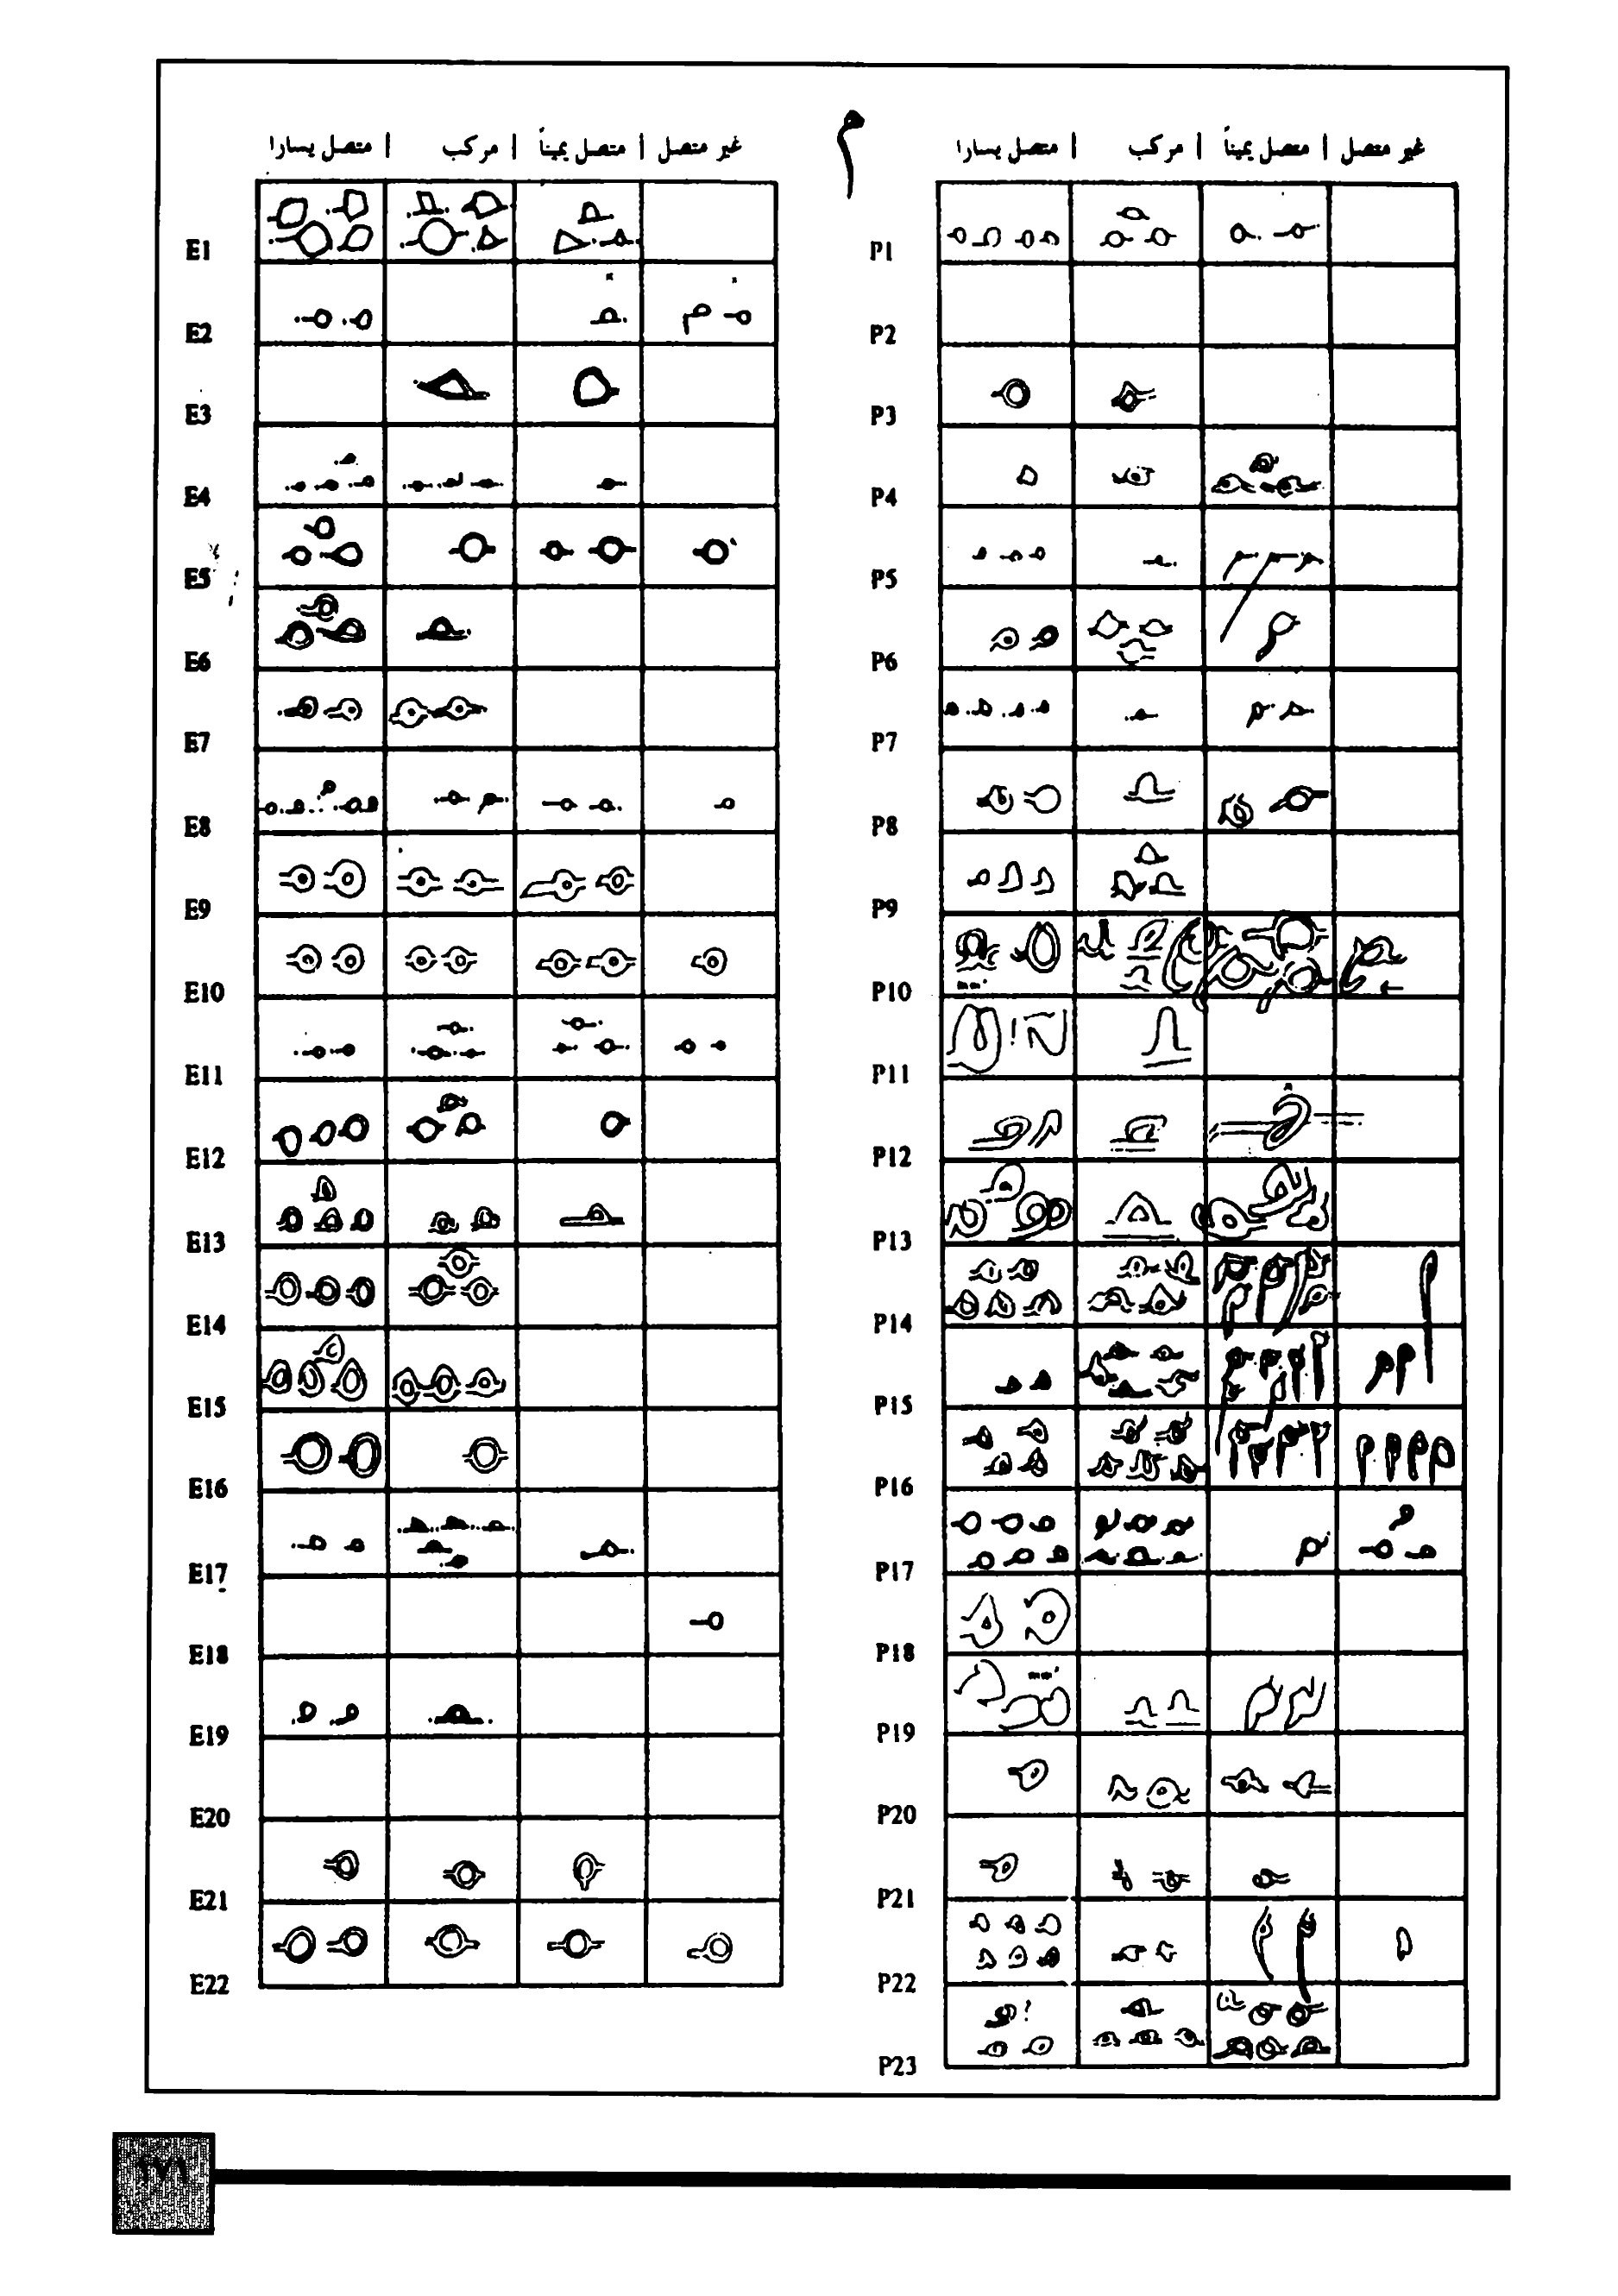 م
غير متصل | متصل يميناً | مركب | متصل يسارا
غير متصل | متصل يميناً | مركب | متصل يسارا
E1
E2
E3
E4
E5
E6
E7
E8
E9
E10
E11
E12
E13
E14
E15
E16
E17
E18
E19
E20
E21
E22
P1
P2
P3
P4
P5
P6
P7
P8
P9
P10
P11
P12
P13
P14
P15
P16
P17
P18
P19
P20
P21
P22
P23